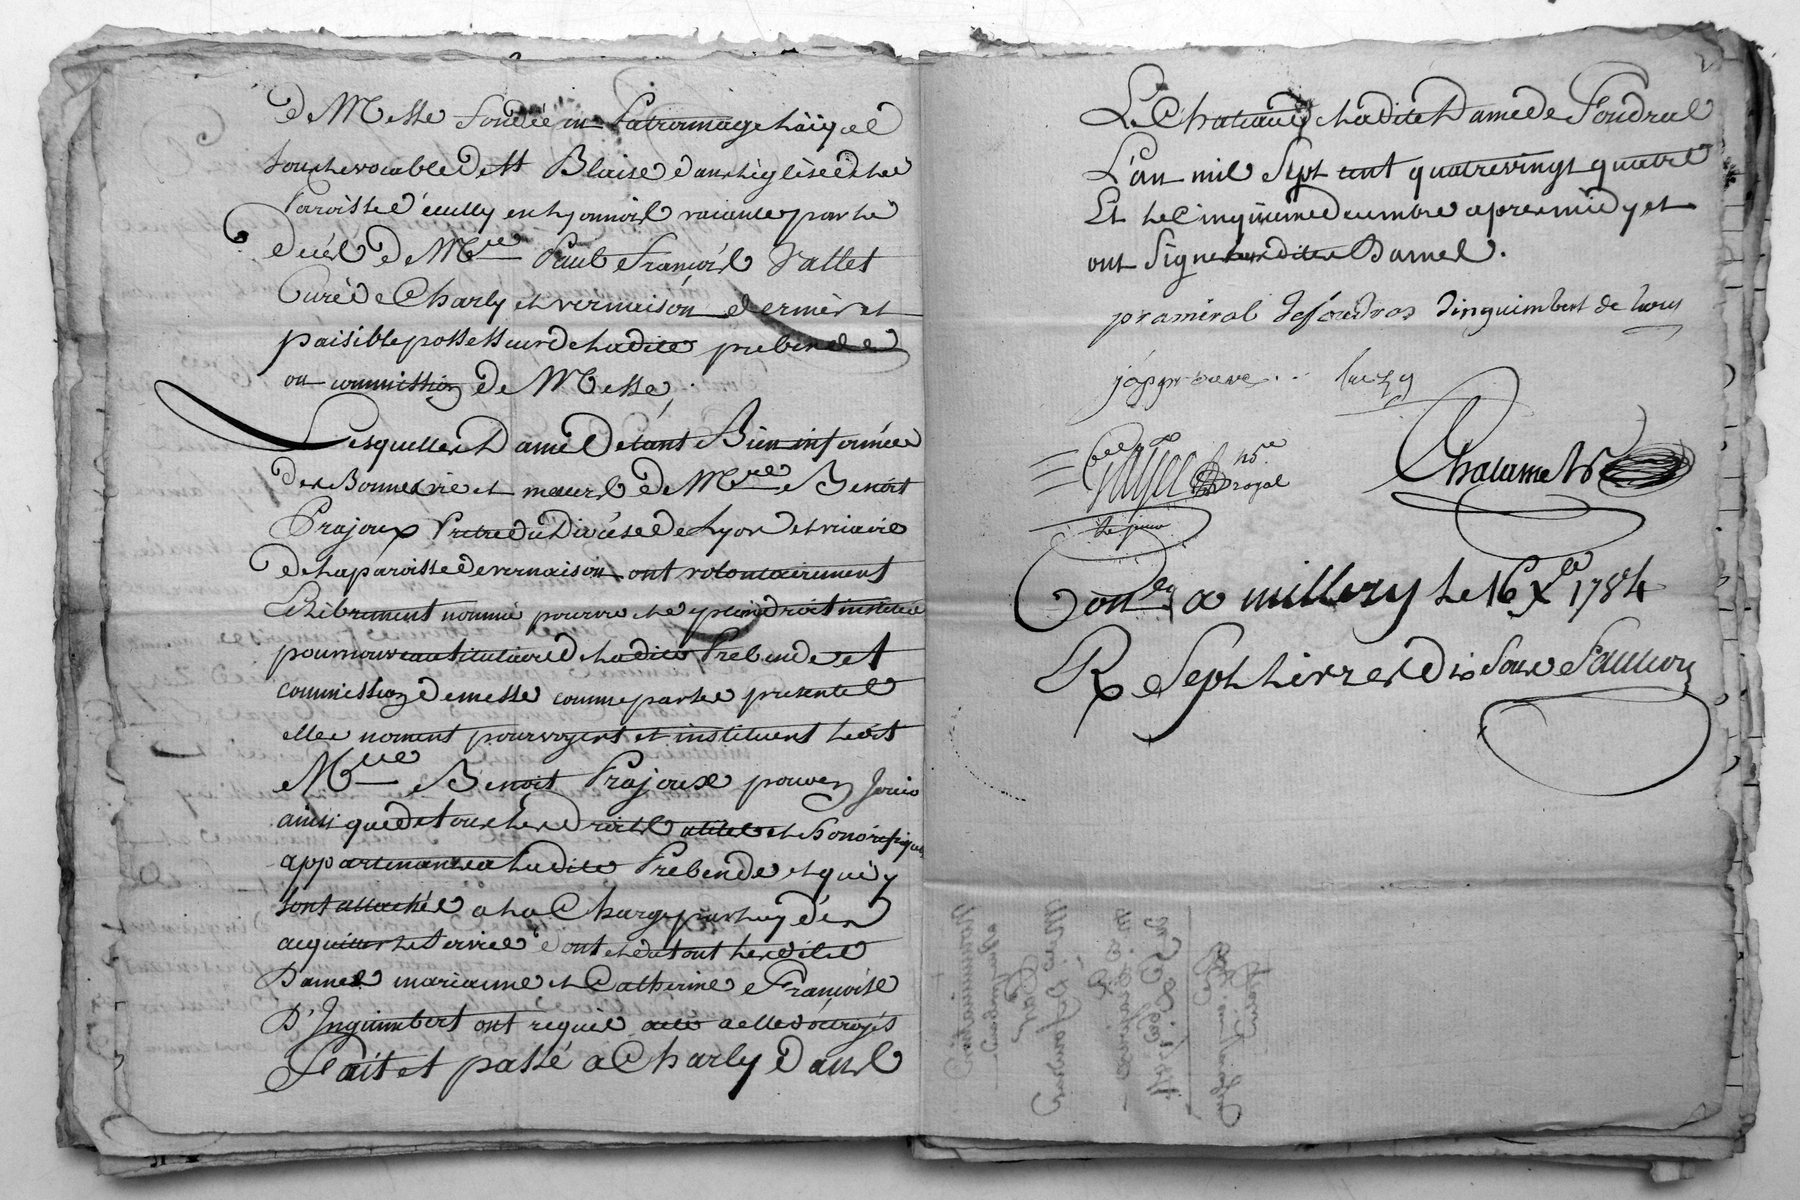 de Messe fondée en Patronnage Laiq al
sous le vocable de St Blaise dans l'église de la
Paroisse d'écully en Lyonnois vacante par le
décès de Mre Paul François Vallet
Curé de Charly et vernaison dernier et
paisible possesseur de ladite prebende
ou commission de Messe.
Lesquelles Dames étant Bien informées
des Bonnes vie et mœurs de Mre Benoit
Prajoux Prêtre du Diocèse de Lyon et vicaire
de la paroisse de vernaison ont volontairement
et librement nommé pourvu et de plein droit institué
pour nouveau titulaire de ladite Prebende et
commission de messe comme par les presentes
elles noment pourvoyent et instituent ledit
Mre Benoit Prajoux pour en Jouir
ainsi que de tous les droits utiles et honorifiques
appartenans a ladite Prebende et qui y
sont attachés a la Charge par luy d'en
acquitter le service dont et du tout lesdites
Dames marianne et Catherine Françoise
D'Inguimbert ont requis acte a elles octroyés
Fait et passé a Charly dans
Le Chateau de ladite Dame de Foudras
L'an mil sept cent quatrevingt quatre
Et le cinq décembre apres midy et
ont signé lesdites Dames.
pramiral de foudras Dinguimbert de
j'approuve
no.re
royal
Chalamel
Con.lé a millery le 16 Xbre 1784
R sept livres dix sous